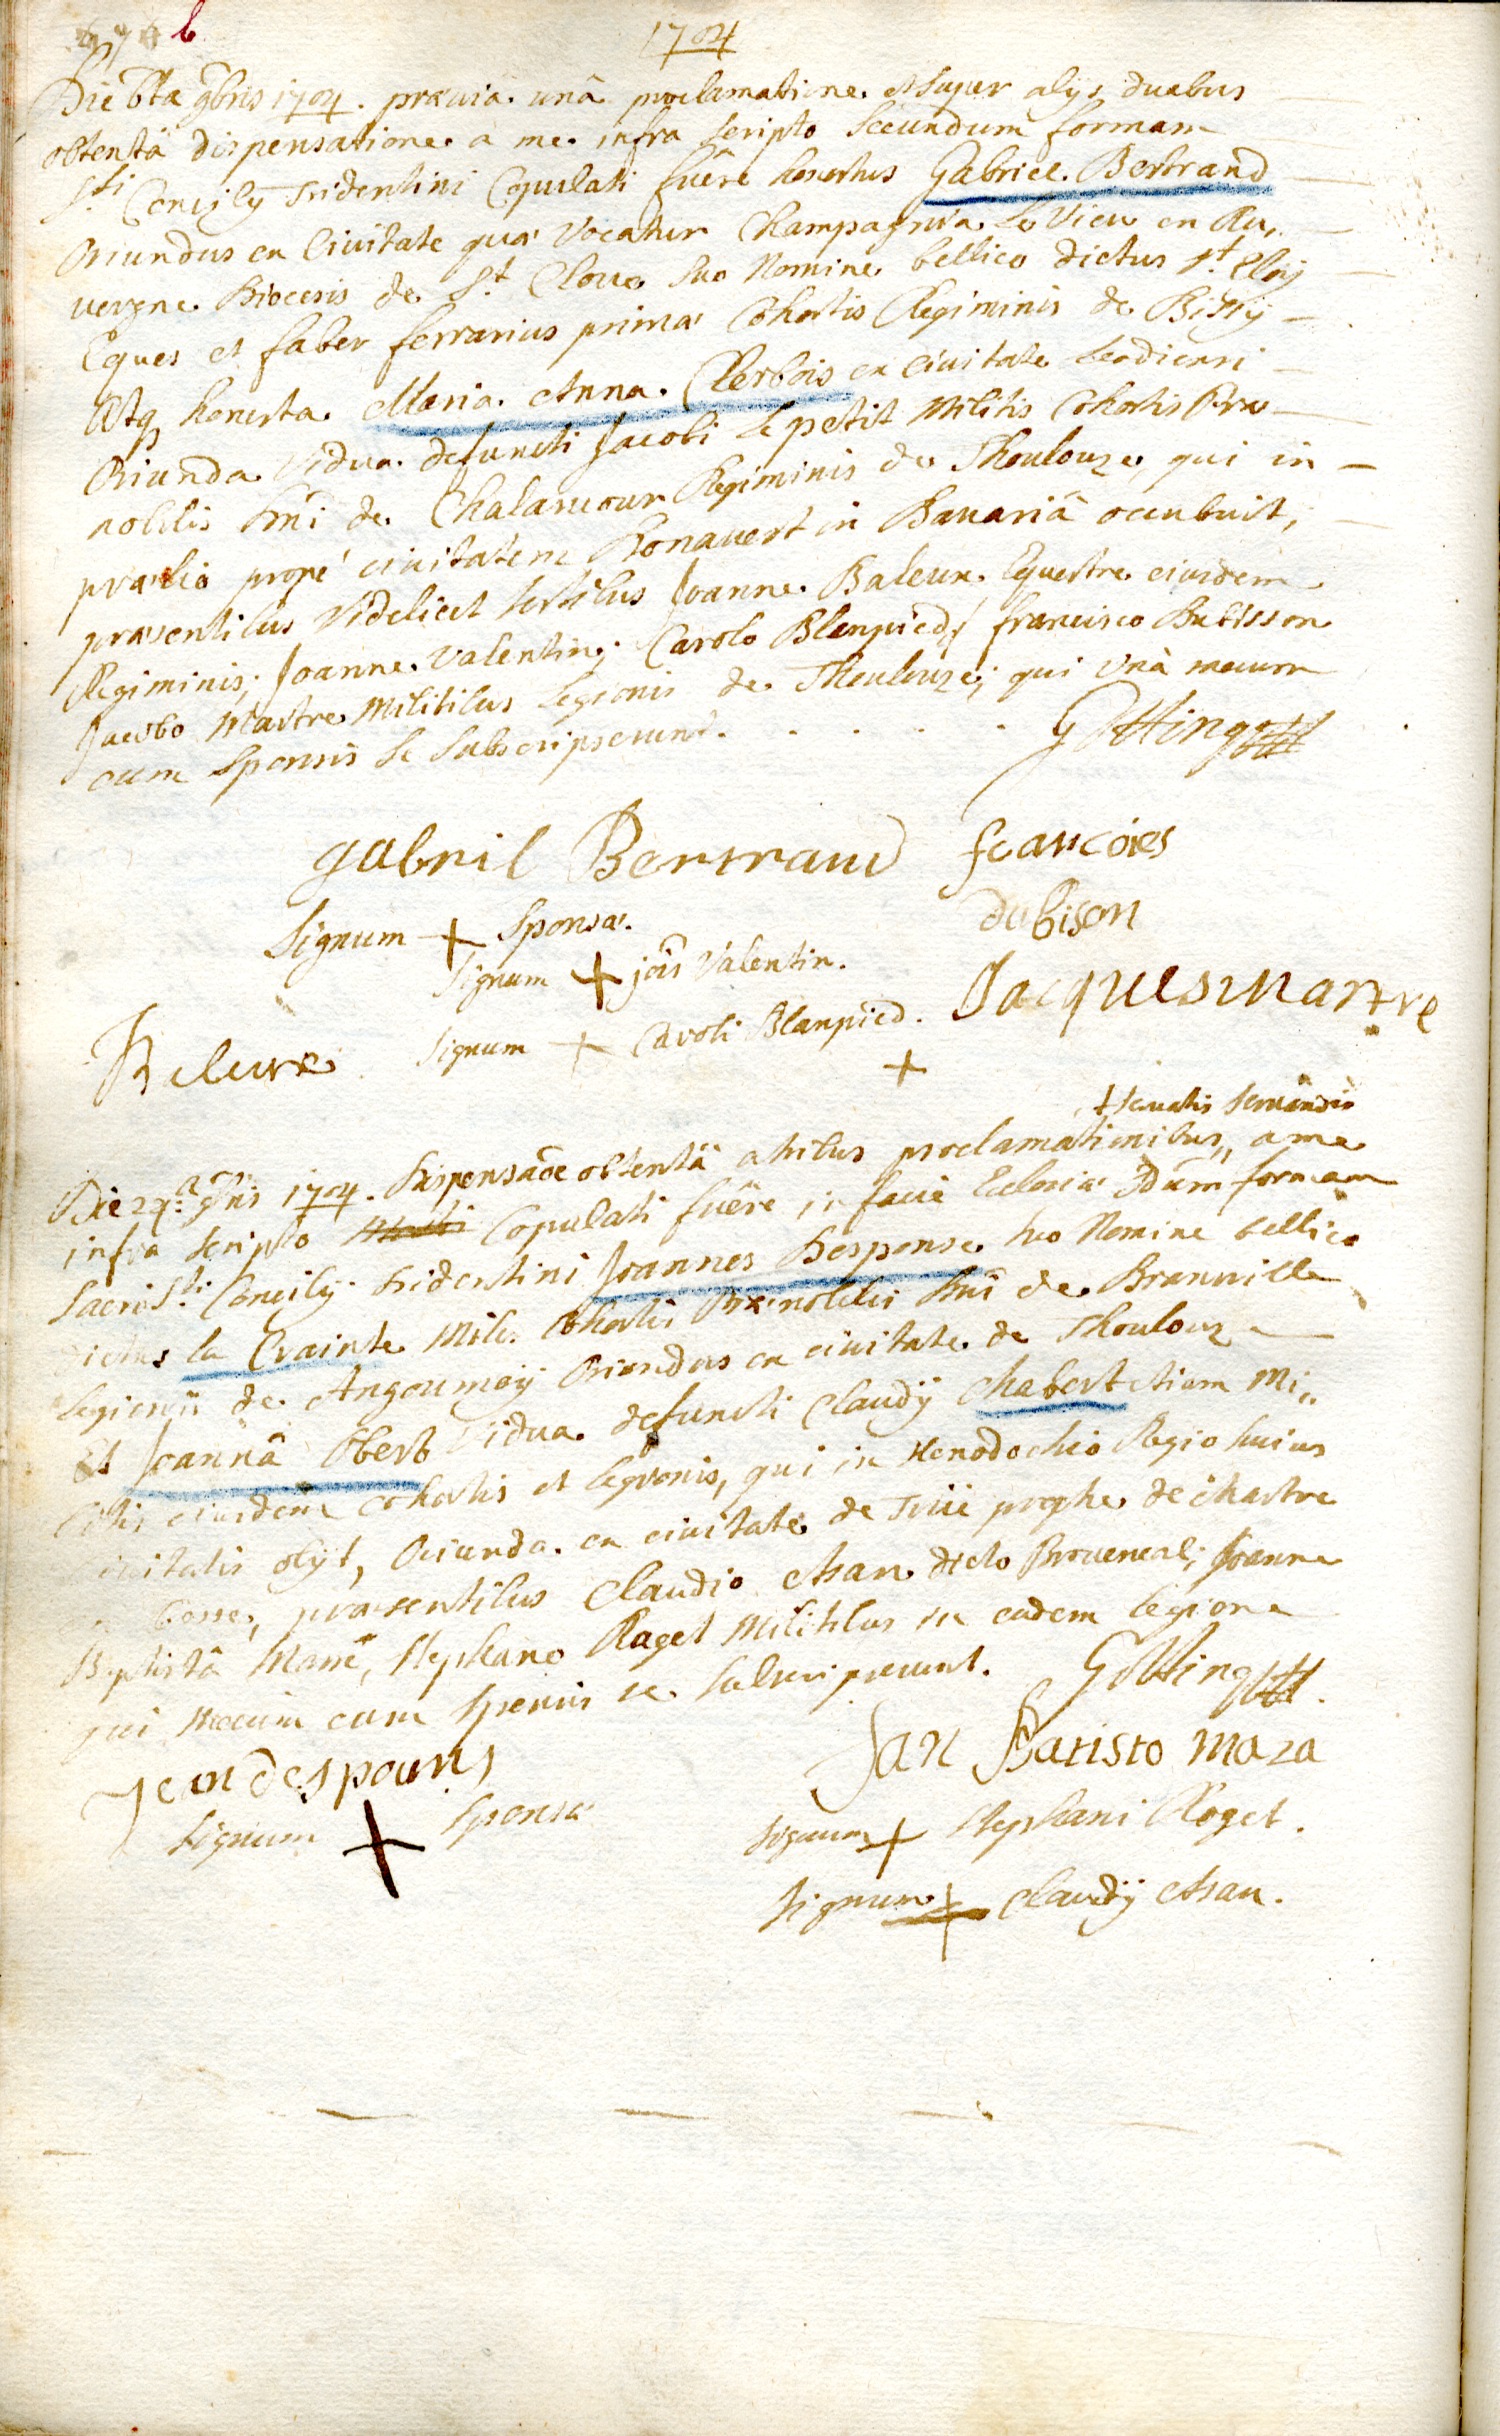 b
1704
Die 6ta 9bris 1704. præuiâ unâ proclamatione et super alÿs duabus
obtentâ dispensatione a me infra scripto Secundum formam
S.ti ConcilÿTridentini Copulati fuêre honestus Gabriel Bertrand
Oriundus ex Ciuitate quæ Vocatur Champagnia Le Vieu en Au,
uergne Diocesis de St Cloue suo Nomine bellico dictus St Eloÿ
Eques et faber ferrarius primæ Cohortis Regiminis de Bissÿ
Atq honesta Maria Anna Clerbois ex ciuitate Leodiensi
Oriunda Vidua defuncti Jacobi Le petit Militis Cohortis Præ
nobilis Dni de Chalancour Regiminis de Thoulouze, qui in
prælio propé ciuitatem Donauert in Bauariâ occubuit,
præsentibus Videlicet testibus Joanne Baleux Equestre eiusdem
Regiminis; Joanne Valentin; Carolo Blanpied; francisco Dubisson
Jacobo Martre Militibus Legionis de Thoulouze; qui Vnà mecum
cum Sponsis se subscripserunt. . . . . Gotting
gabril Bertrand
francoies
dubison
Signum + Sponsæ.
Signum + jois Valentin.
Jacques martre
Baleux
Signum + Caroli Blanpied.
+
+ seruatis seruandis
Die 29.a 9bris 1704. Dispensaõe obtentâ a tribus proclamationibus,, a me
infra scripto Copulati fuêre in facie Eclesiæ 2dum formam
Sacri S.ti Concilÿ Tridentini Joannes Desponse suo Nomine bellico
dictus la Crainte Miles Cohortis Prænobilis Dni de Branuille
Legionis de Angoumoÿ Oriundus ex ciuitate de Thoulouze
Et Joannâ Obert Vidua defuncti Claudÿ Chabert etiam Mi,,
litis eiusdem cohortis et legionis, qui in Xenodochio Regio huius
ciuitatis obÿt, Oriunda ex ciuitate de prophe de chartre
præsentibus Claudio Asan dicto Prouencal; Joanne
Baptistâ Massé, Stephano Raget Militibus in eadem legione
qui Mecum cum Sponsis se subscripserunt. Gotting
Jean despouns
Jan Batisto maza
Signum + Sponsæ
Signum + Stephani Roget.
Signum + Claudÿ Asan.